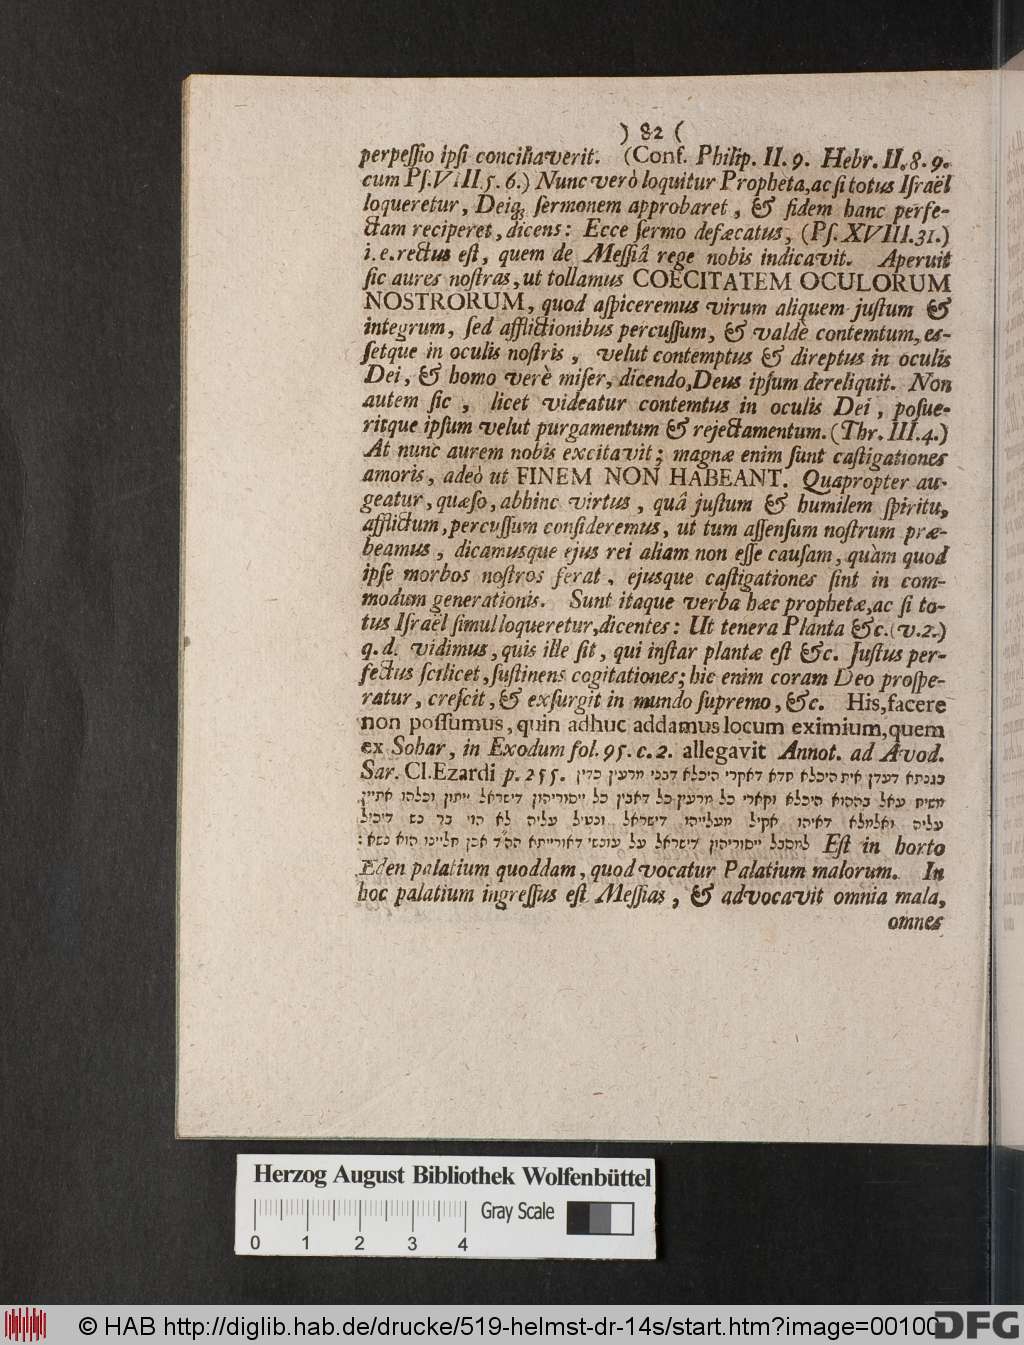 ) 82 (
perpessio ipsi conciliaverit. (Conf. Philip. II. 9. Hebr. II. 8. 9.
cum Ps. VIII. 5. 6.) Nunc verò loquitur Propheta, ac si totus Israël
loqueretur, Deiq; sermonem approbaret, & fidem hanc perfe-
ctam reciperet, dicens: Ecce sermo defæcatus, (Ps. XVIII. 31.)
i. e. rectus est, quem de Messiâ rege nobis indicavit. Aperuit
sic aures nostras, ut tollamus COECITATEM OCULORUM
NOSTRORUM, quod aspiceremus virum aliquem justum &
integrum, sed afflictionibus percussum, & valdè contemtum, es-
setque in oculis nostris, velut contemptus & direptus in oculis
Dei, & homo verè miser, dicendo, Deus ipsum dereliquit. Non
autem sic, licet videatur contemtus in oculis Dei, posue-
ritque ipsum velut purgamentum & rejectamentum. (Thr. III. 4.)
At nunc aurem nobis excitavit; magnæ enim sunt castigationes
amoris, adeò ut FINEM NON HABEANT. Quapropter au-
geatur, quæso, abhinc virtus, quâ justum & humilem spiritu,
afflictum, percussum consideremus, ut tum assensum nostrum præ-
beamus, dicamusque ejus rei aliam non esse causam, quàm quod
ipse morbos nostros ferat, ejusque castigationes sint in com-
modum generationis. Sunt itaque verba hæc prophetæ, ac si to-
tus Israël simul loqueretur, dicentes: Ut tenera Planta &c. (v. 2.)
q. d. vidimus, quis ille sit, qui instar plantæ est &c. Justus per-
fectus scilicet, sustinens cogitationes; hic enim coram Deo prospe-
ratur, crescit, & exsurgit in mundo supremo, &c. His, facere
non possumus, quin adhuc addamus locum eximium, quem
ex Sohar, in Exodum fol. 95. c. 2. allegavit Annot. ad Avod.
Sar. Cl. Ezardi p. 255. בגנתא דעדן אית היכלא חדא דאקרי היכלא דבני מרעין כדין
משיח עאל בההוא היכלא וקארי כל מרעין כל דאבין כל ייסוריהון דישראל ייתון וכלהו אתיין
עליה ואלמלא דאיהו אקיל מעלייהו דישראל ונטיל עליה לא הוי בר נש דיכול
למסבל ייסוריהון דישראל על עונשי דאורייתא הה״ד אכן חליינו הוא נשא: Est in horto
Eden palatium quoddam, quod vocatur Palatium malorum. In
hoc palatium ingressus est Messias, & advocavit omnia mala,
omnes
Herzog August Bibliothek Wolfenbüttel
Gray Scale
0 1 2 3 4
© HAB http://diglib.hab.de/drucke/519-helmst-dr-14s/start.htm?image=00100
DFG